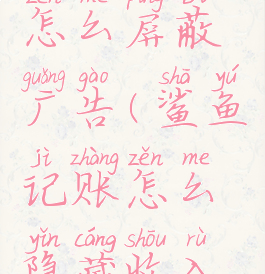 zěn me píng bì
怎么屏蔽
guǎng gào shā yú
广告(鲨鱼
jì zhàng zěn me
记账怎么
yǐn cáng shōu rù
隐藏收入